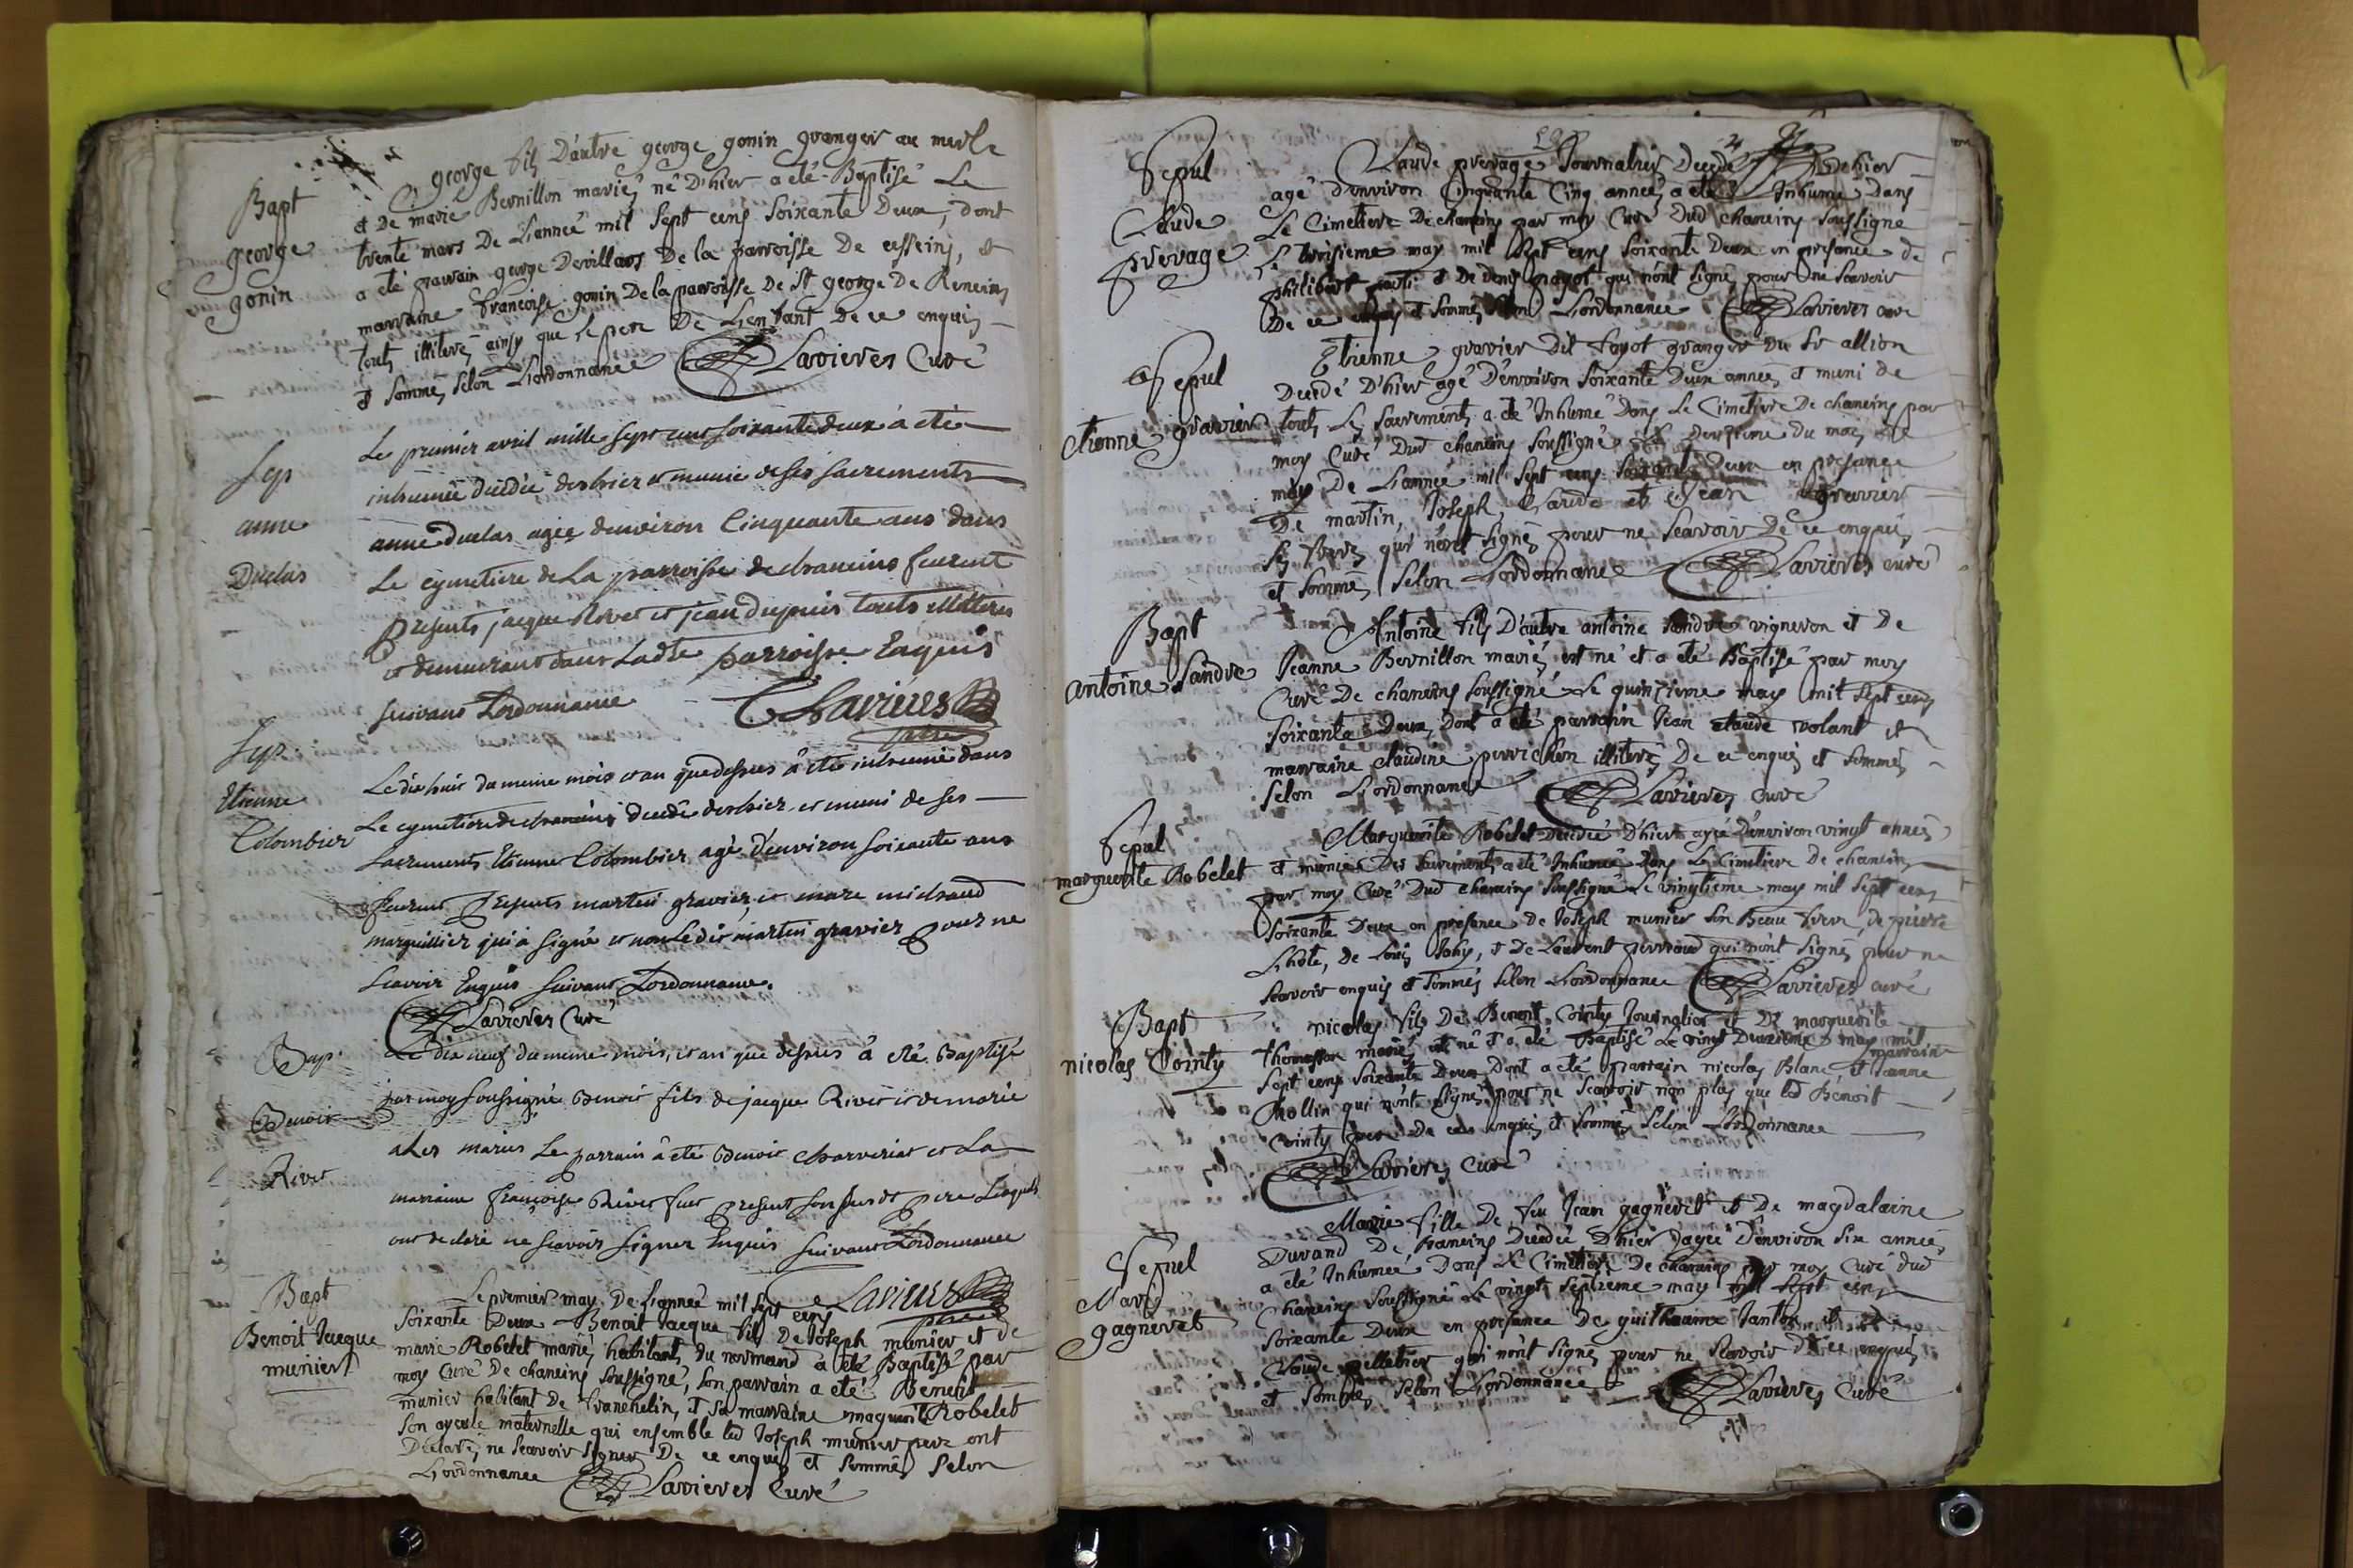 Bapt
george
gonin
george fils D'autre george gonin granger au merle
et De marie Bernillon mariés né D'hier a eté Baptisé Le
trente mars De L'année mil sept cens soixante Deux, dont
a eté parrain george Devillars De la parroisse De cesseins, et
marraine francoise gonin De la parroisse De St george De Reneins
touts illiterés ainsy que le pere De L'enfant De ce enquis
et sommés selon L'ordonnance Lavieres Curé
Sep
anne
Duclas
Le premier avril mille sept cent soixante deux à eté
inhumée décédée des hier et munie de ses sacrements
anne Duclas agée denviron Cinquante ans dans
Le cymetiere de La parroisse de chaneins feurent
Presents jacque Rivet et jean dupuis touts illiteres
et demeurant dans Ladte parroisse Enquis
suivant Lordonnance Lavieres
Sep
Etienne
Colombier
Le dix huit du meme mois et an que dessus à eté inhumé dans
Le cymetiere de chaneins decedé des hier et muni de ses
sacrements Etienne Colombier agé d'environ soixante ans
feurent Presents martin gravier et marc michaud
marguillier qui à signé et non Le dit martin gravier pour ne
scavoir Enquis suivant Lordonnance.
Lavieres Curé
Bap.
Benoit
Rivet
Le dix neuf du meme mois, et an que dessus à eté Baptisé
par moy soussigné Benoit fils de jacque Rivet et de marie
 mariés Le parrain à eté Benoit charveriat et La
marraine françoise Rivet fut present son pere Lesquels
ont declaré ne scavoir signer Enquis suivant Lordonnance
Lavieres
Bapt
Benoit Jacque
munier
Le premier may De L'année mil sept cens
soixante Deux Benoit Jacque fils De Joseph munier et de
marie Robelet mariés habitants du normand a eté Baptisé par
moy Curé De chaneins soussigné, son parrain a eté Benoit
munier habitant De franchelin, et sa marraine maguerite Robelet
son ayeule maternelle qui ensemble led Joseph munier pere ont
Declarés ne scavoir signer De ce enquis et sommés selon
L'ordonnance Lavieres Curé
Sepul
Claude
prevage
Claude prevage Journalier Decedé Dehier
agé d'environ Cinquante Cinq années a eté Inhumé Dans
Le Cimetiere De chaneins par moy Curé Dud chaneins soussigné
Le troisieme may mil sept cens soixante Deux en presence de
philibert et De Denis qui n'ont signé pour ne scavoir
De ce enquis et sommés selon L'ordonnance Lavieres curé
Sepul
etienne gravier
Etienne gravier dit fayot granger Du Sr allion
Decedé D'hier agé D'environ soixante Deux années et muni de
touts Les sacrements a eté Inhumé Dans Le Cimetiere De chaneins par
moy Curé Dud chaneins soussigné Le Du mois De
may De L'année mil sept cens soixante Deux en presence
De martin, Joseph, Claude et Jean gravier
 qui n'ont signés pour ne scavoir De ce enquis,
et sommés selon L'ordonnance Lavieres curé
Bapt
antoine Sandre
Antoine fils D'autre antoine Sandre vigneron et De
Jeanne Bernillon mariés est né et a eté Baptisé par moy
Curé De chaneins soussigné Le quinzieme may mil sept cens
soixante Deux, Dont a eté parrain Jean claude volant et
marraine claudine perrichon illiterés De ce enquis et sommés
selon L'ordonnance Lavieres curé
Sepul
marguerite Robelet
Marguerite Robelet Decedée D'hier agée D'environ vingt années
et munie Des sacrements a eté Inhumée Dans Le Cimetiere De chaneins
par moy Curé Dud chaneins soussigné Le vingtieme may mil sept cens
soixante Deux en presence de Joseph munier son Beau frere, de pierre
Lhôte, de Louis Joly, et De Laurent perraud qui n'ont signés pour ne
scavoir enquis et sommés selon L'ordonnance Lavieres curé
Bapt
nicolas Cointy
nicolas fils De Benoit Cointy Journalier et De marguerite
Thomasson mariés est né et a eté Baptisé Le vingt Deuxieme may mil
sept cens soixante Deux Dont a eté parrain nicolas Blanc, et marraine Jeanne
Chollin qui n'ont signés pour ne scavoir non plus que led Benoit
Cointy pere De ce enquis et sommés selon L'ordonnance
Lavieres curé
Sepul
Marie
gagneret
Marie fille De feu Jean gagneret et De magdalaine
Durand De chaneins Decedée D'hier agée D'environ six années,
a eté Inhumée Dans Le Cimetiere De chaneins par moy Curé dud
Chaneins soussigné Le vingt septieme may mil sept cens
soixante Deux en presence De guilhaume Janton et De
Claude pelletier qui n'ont signés pour ne scavoir De ce enquis
et sommés selon L'ordonnance Lavieres Curé